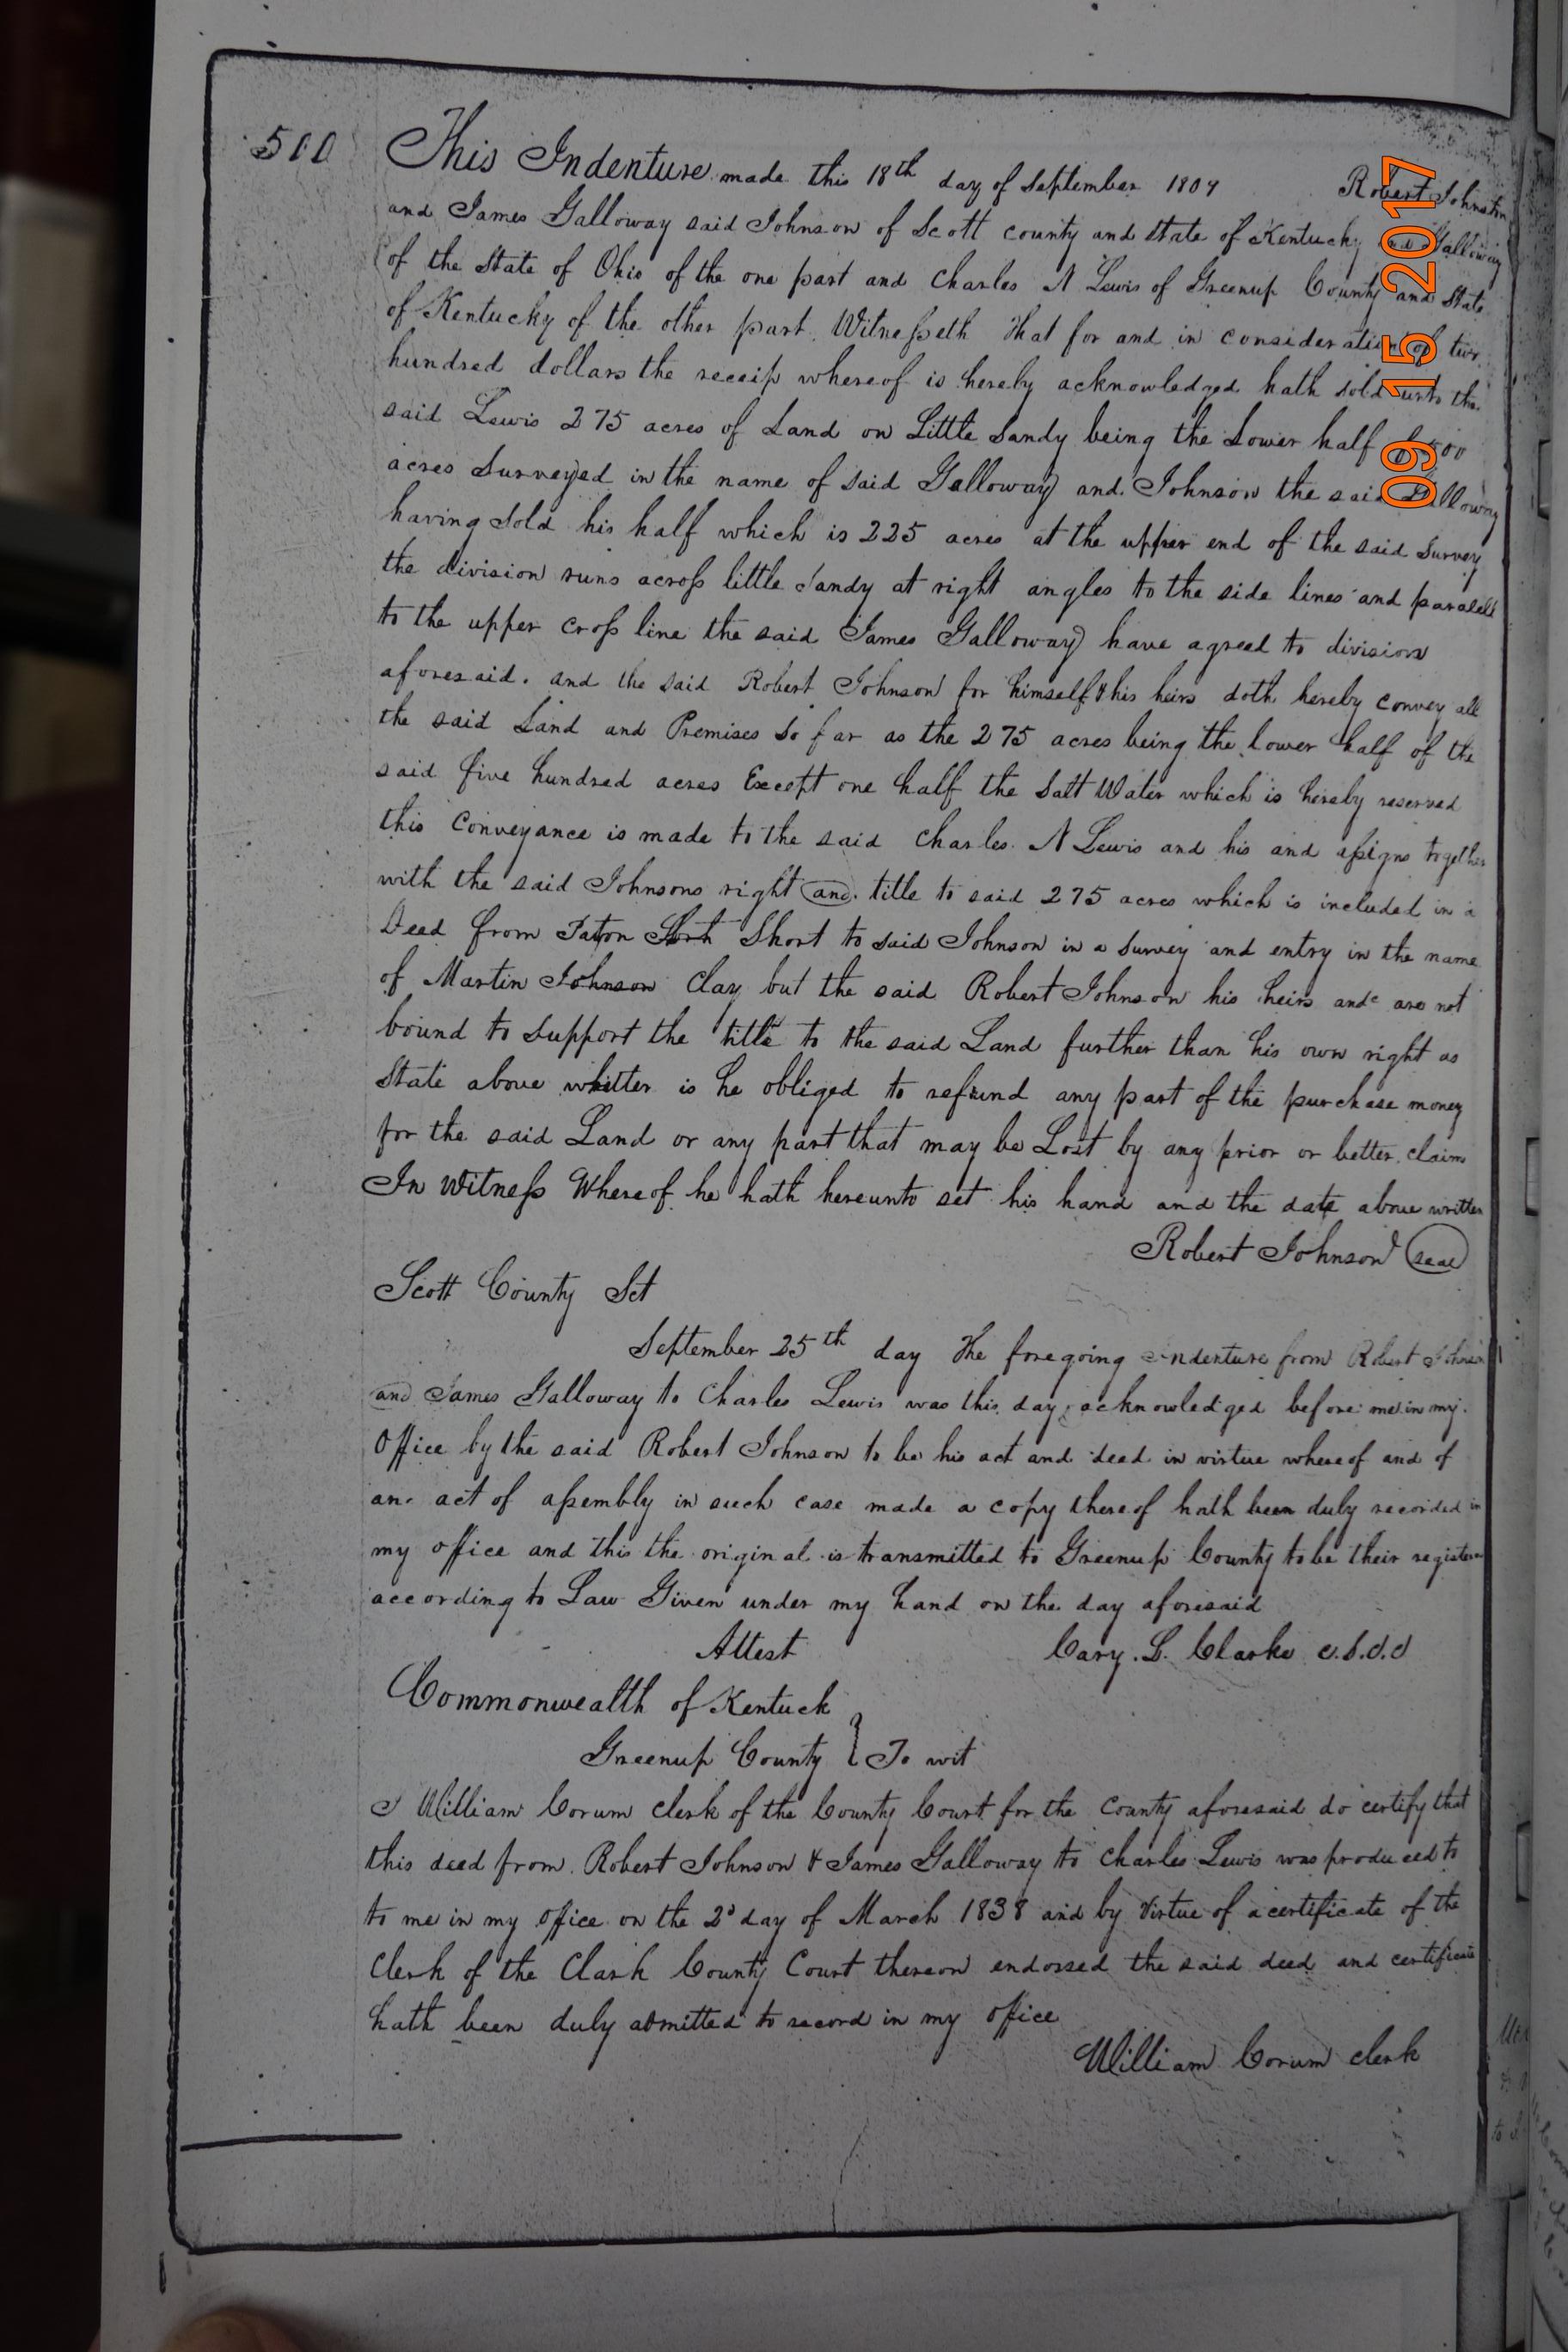 500
This Indenture made this 18th day of September 1804 Robert Johnston
and James Galloway said Johnson of Scott county and state of Kentucky and Galloway
of the State of Ohio of the one part and Charles N Lewis of Greenup County and State
of Kentucky of the other part. Witnesseth that for and in consideration of two
hundred dollars the receip whereof is hereby acknowledged hath sold unto the
said Lewis 275 acres of Land on Little Sandy being the Lower half of 500
acres Surveyed in the name of said Galloway and Johnson the said Galloway
having Sold his half which is 225 acres at the upper end of the said Survey
the division runs across little Sandy at right angles to the side lines and paralell
to the upper cross line the said James Galloway have agreed to division
aforesaid. and the said Robert Johnson for himself & his heirs doth hereby convey all
the said Land and Premises So far as the 275 acres being the lower half of the
said five hundred acres Except one half the Salt Water which is hereby reserved
this Conveyance is made to the said Charles N Lewis and his and assigns together
with the said Johnsons right and title to said 275 acres which is included in a
Deed from Short to said Johnson in a Survey and entry in the name
of Martin Johnson Clay but the said Robert Johnson his heirs andc are not
bound to Support the title to the said Land further than his own right as
State above whitter is he obliged to refund any part of the purchase money
for the said Land or any part that may be Lost by any prior or better claim
In Witness Whereof he hath hereunto set his hand and the date above written
Robert Johnson seal
Scott County Sct
September 25th day The foregoing indenture from Robert Johnson
and James Galloway to Charles Lewis was this day acknowledged before me in my
Office by the said Robert Johnson to be his act and deed in virtue whereof and of
an act of assembly in such case made a copy thereof hath been duly recorded in
my office and this the original is transmitted to Greenup County to be their registered
according to Law Given under my hand on the day aforesaid
Attest Cary. L. Clarke
Commonwealth of Kentuck
Greenup County } To wit
I William Corum Clerk of the County Court for the County aforesaid do certify that
this deed from Robert Johnson & James Galloway to Charles Lewis was produced to
to me in my office on the 2d day of March 1838 and by Virtue of a certificate of the
Clerk of the Clark County Court thereon endorsed the said deed and certificate
hath been duly admitted to record in my office
William Corum Clerk
09 15 2017